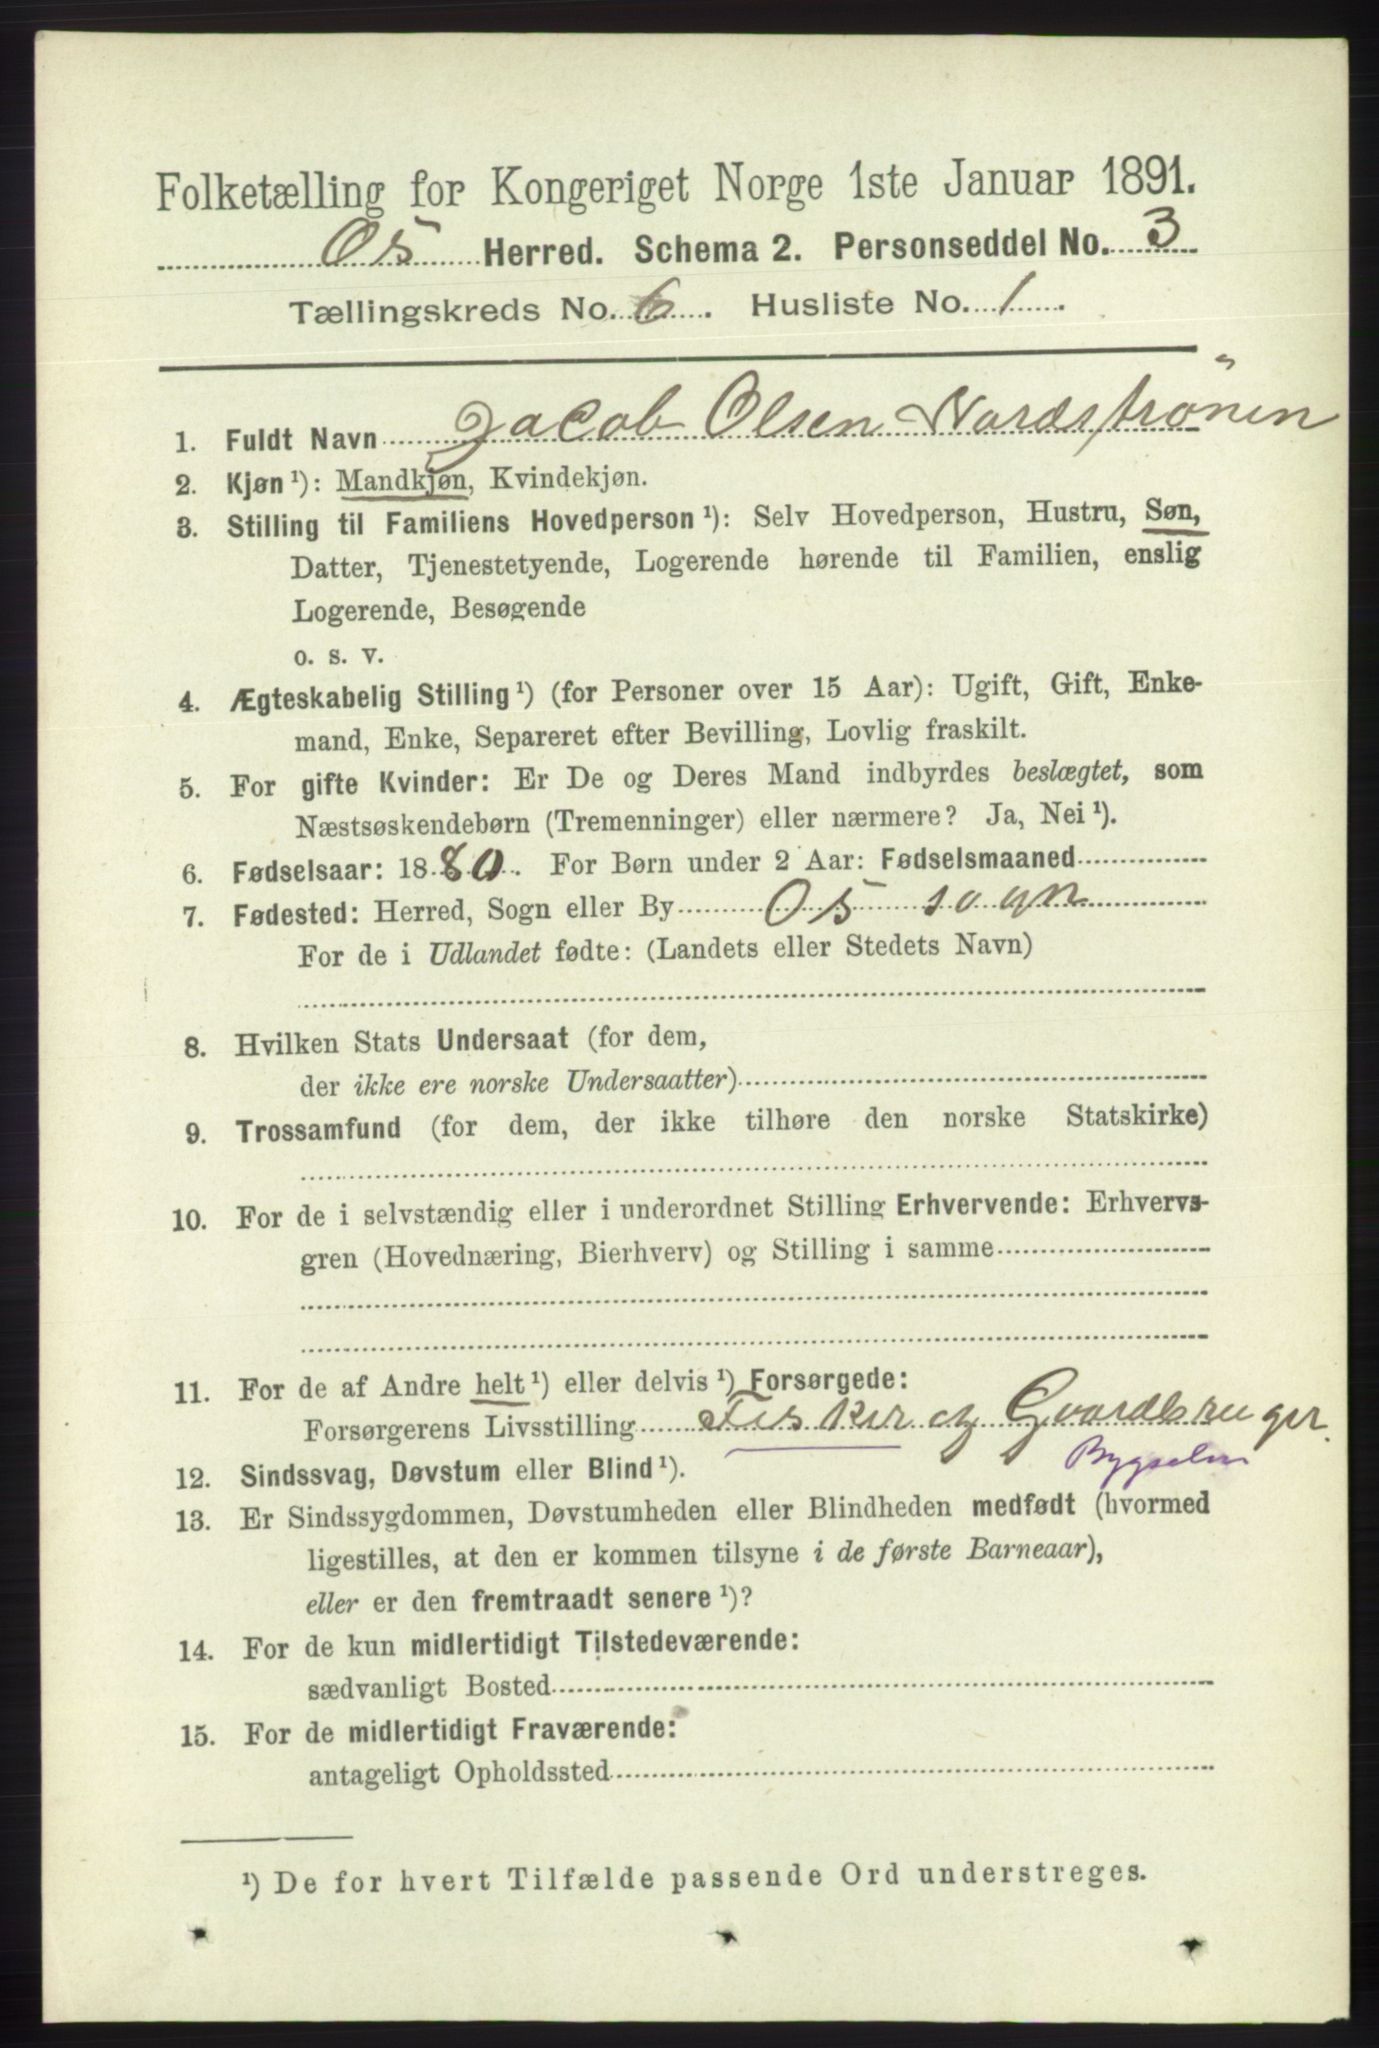 Folketælling for Kongeriget Norge 1ste Januar 1891.
Os Herred. Schema 2. Personseddel No. 3
Tællingskreds No. 6. Husliste No. 1.
1. Fuldt Navn Jacob Olsen Nordstrønen
2. Kjøn ¹): Mandkjøn, Kvindekjøn.
3. Stilling til Familiens Hovedperson ¹): Selv Hovedperson, Hustru, Søn,
Datter, Tjenestetyende, Logerende hørende til Familien, enslig
Logerende, Besøgende
o. s. v.
4. Ægteskabelig Stilling ¹) (for Personer over 15 Aar): Ugift, Gift, Enke-
mand, Enke, Separeret efter Bevilling, Lovlig fraskilt.
5. For gifte Kvinder: Er De og Deres Mand indbyrdes beslægtet, som
Næstsøskendebørn (Tremenninger) eller nærmere? Ja, Nei ¹).
6. Fødselsaar: 1880. For Børn under 2 Aar: Fødselsmaaned
7. Fødested: Herred, Sogn eller By Os sogn
For de i Udlandet fødte: (Landets eller Stedets Navn)
8. Hvilken Stats Undersaat (for dem,
der ikke ere norske Undersaatter)
9. Trossamfund (for dem, der ikke tilhøre den norske Statskirke)
10. For de i selvstændig eller i underordnet Stilling Erhvervende: Erhvervs-
gren (Hovednæring, Bierhverv) og Stilling i samme
11. For de af Andre helt ¹) eller delvis ¹) Forsørgede:
Forsørgerens Livsstilling Fisker og Gaardbruger.
Bygselm
12. Sindssvag, Døvstum eller Blind ¹).
13. Er Sindssygdommen, Døvstumheden eller Blindheden medfødt (hvormed
ligestilles, at den er kommen tilsyne i de første Barneaar),
eller er den fremtraadt senere ¹)?
14. For de kun midlertidigt Tilstedeværende:
sædvanligt Bosted
15. For de midlertidigt Fraværende:
antageligt Opholdssted
¹) De for hvert Tilfælde passende Ord understreges.